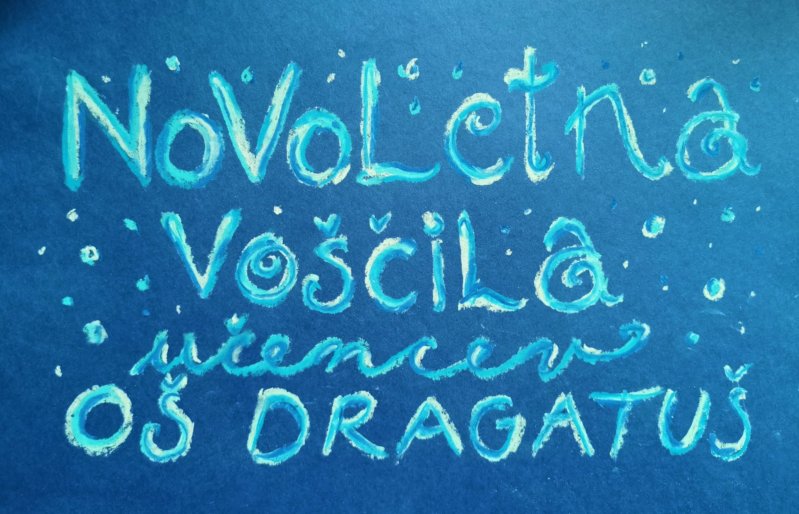 NoVoLetna
VoščiLa
učencev
OŠ DRAGATUŠ